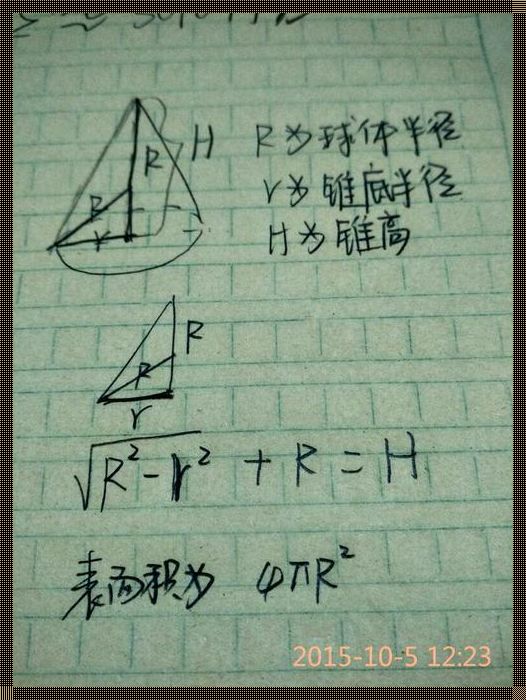 H
R
R
r
R为球体半径
r为锥底半径
H为锥高
R
R
r
√R²-r² + R = H
表面积为 4πR²
2015-10-5 12:23